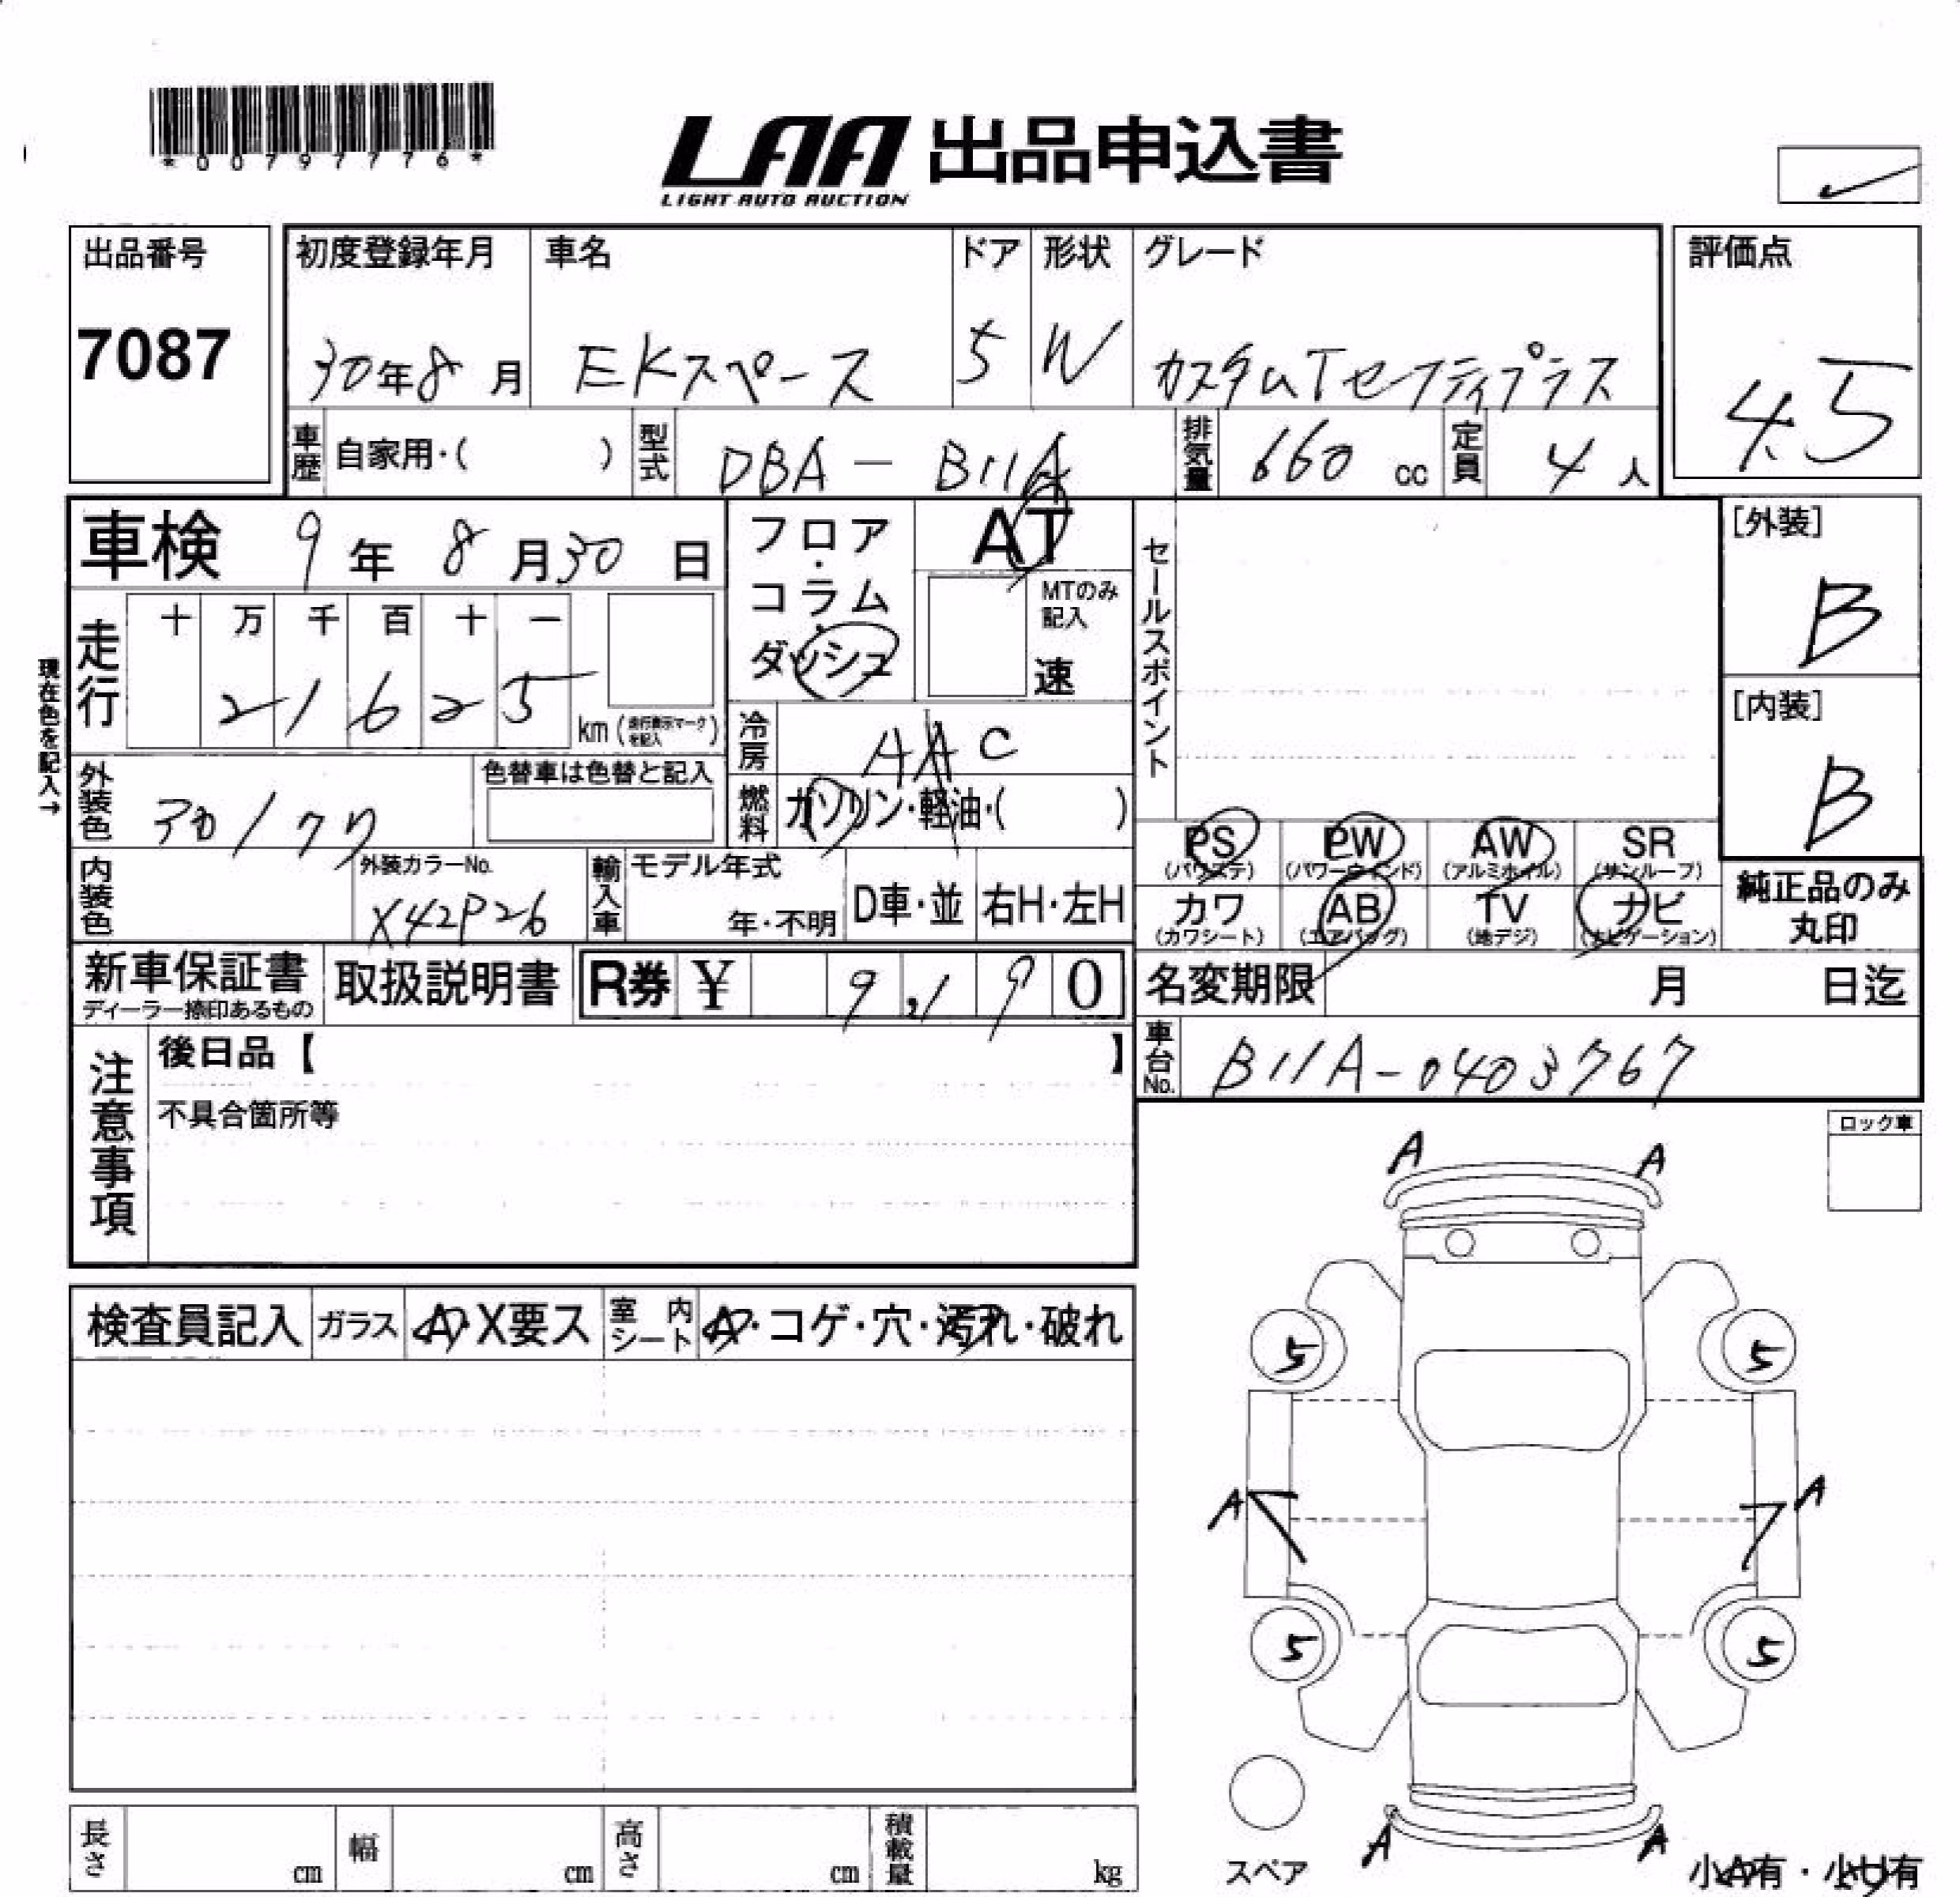 *00797776*
LAA 出品申込書
LIGHT AUTO AUCTION
出品番号
7087
初度登録年月
30年8月
車名
EKスペース
ドア
5
形状
W
グレード
カスタムTセーフティプラス
評価点
4.5
車歴 自家用・( )
型式 DBA - B11A
排気量 660 cc
定員 4人
車検 9年8月30日
フロア・コラム・ダッシュ
AT
MTのみ記入
速
セールスポイント
[外装]
B
[内装]
B
現在色を記入→
走行
十 万 千 百 十 一
2 1 6 2 5
km (走行表示マークを記入)
冷房 AAC
燃料 ガソリン・軽油・( )
外装色
色替車は色替と記入
内装色
外装カラーNo.
X42P26
輸入車
モデル年式
年・不明
D車・並
右H・左H
PS
(パワステ)
PW
(パワーウインド)
AW
(アルミホイル)
SR
(サンルーフ)
カワ
(カワシート)
AB
(エアバッグ)
TV
(地デジ)
ナビ
(ナビゲーション)
純正品のみ
丸印
新車保証書
ディーラー捺印あるもの
取扱説明書
R券 ¥ 9,190
名変期限 月 日迄
車台No. B11A-0403767
注意事項
後日品【 】
不具合箇所等
ロック車
検査員記入
ガラス A・X要ス
室内シート A・コゲ・穴・汚れ・破れ
A A
5 5
A A
5 5
A A
スペア
小A有・小U有
長さ cm
幅 cm
高さ cm
積載量 kg